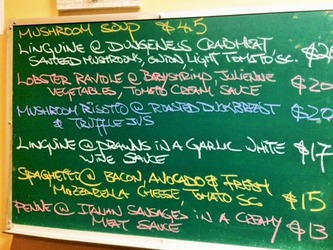 MUSHROOM SOUP $4.5
LINGUINE @ DUNGENESS CRABMEAT,
SAUTEED MUSHROOMS, ONION, LIGHT TOMATO SC.
LOBSTER RAVIOLE @ BAYSHRIMP JULIENNE $20
VEGETABLES, TOMATO CREAM SAUCE
MUSHROOM RISOTTO @ ROASTED DUCK BREAST
& TRUFFLE JUS
LINGUINE @ PRAWNS IN A GARLIC WHITE $17
WINE SAUCE
SPAGHETTI @ BACON, AVOCADO & FRESH
MOZZARELLA CHEESE, TOMATO SC $15
PENNE @ ITALIAN SAUSAGES IN A CREAMY $13
MEAT SAUCE